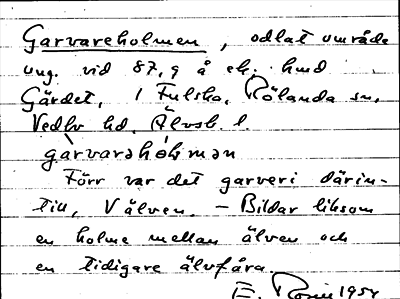 Garvareholmen, odlat område
ung. vid 87,9 å ek. hmd
Gärdet, i Fulsko, Rölanda sn,
Vedbo hd. Älvsb. l.
garvarəhòlmən
Förr var det garveri därin-
till, V älven. – Bildar liksom
en holme mellan älven och
en tidigare älvfåra.
E. 1954